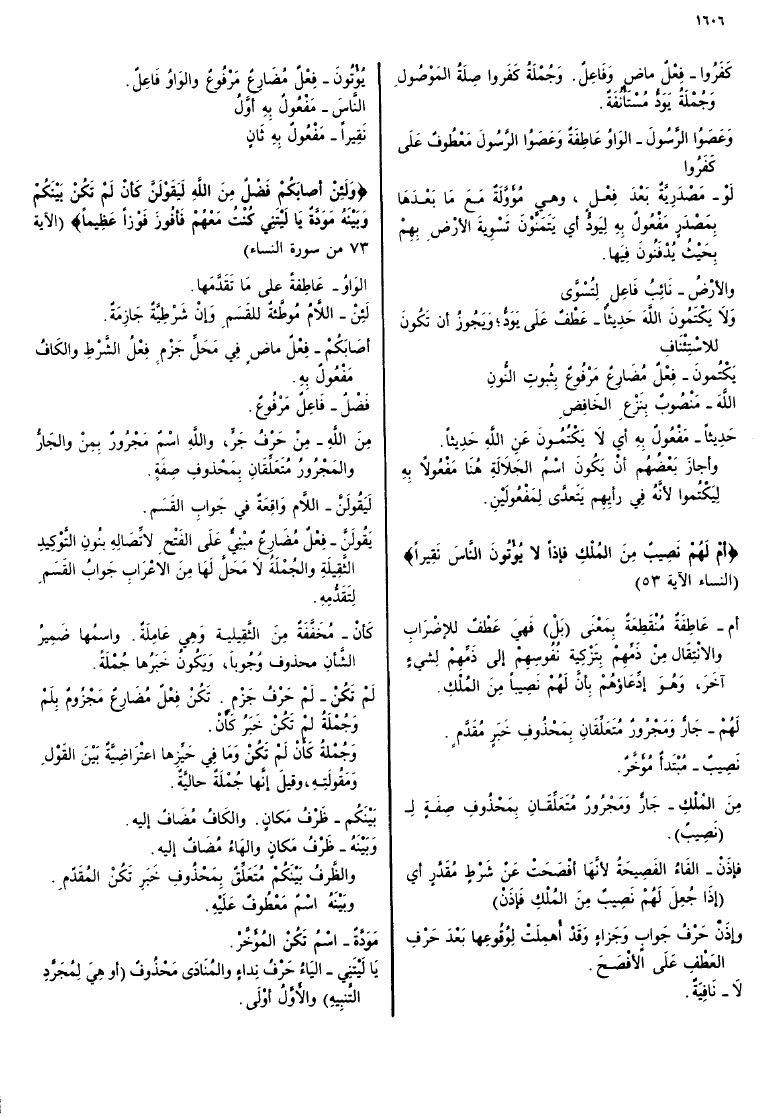 ١٦٠٦
كَفَرُوا - فِعْلٌ ماضٍ وَفَاعِلٌ. وَجُمْلَةُ كَفَروا صِلَةُ المَوْصُولِ
وَجُمْلَةُ يَوَدُّ مُسْتَأْنَفَةٌ.
وَعَصَوُا الرَّسُولَ - الوَاوُ عَاطِفَةٌ وَعَصَوُا الرَّسُولَ مَعْطُوفٌ عَلَى
كَفَرُوا
لَوْ - مَصْدَرِيَّةٌ بَعْدَ فِعْلٍ ، وهي مُؤَوَّلَةٌ مَعَ مَا بَعْدَهَا
بِمَصْدَرٍ مَفْعُولٌ بِهِ لِيَوَدُّ أي يَتَمَنَّوْنَ تَسْوِيَةَ الأرْضِ بِهِمْ
بِحَيْثُ يُدْفَنُونَ فِيهَا.
والأرْضُ - نَائِبُ فَاعِلٍ لِتُسَوَّى
وَلَا يَكْتُمُونَ اللَّهَ حَدِيثاً - عَطْفٌ عَلَى يَوَدُّ؛ وَيَجُوزُ أن تَكُونَ
للاسْتِئْنَافِ
يَكْتُمونَ - فِعْلٌ مُضَارِعٌ مَرْفُوعٌ بِثُبوتِ النُّونِ
اللَّهَ - مَنْصُوبٌ بِنَزْعِ الخَافِضِ
حَدِيثاً - مَفْعُولٌ بِهِ أي لَا يَكْتُمُونَ عَنِ اللَّهِ حَدِيثاً.
وأجازَ بَعْضُهُم أنْ يَكُونَ اسْمُ الجَلَالَةِ هُنَا مَفْعُولاً بِهِ
لِيَكْتُموا لأنَّهُ فِي رأيِهِم يَتَعدَّى لِمَفْعُولَيْنِ.
﴿أَمْ لَهُمْ نَصِيبٌ مِنَ المُلْكِ فإذاً لا يُؤْتُونَ النَّاسَ نَقيراً﴾
(النساء الآية ٥٣)
أم - عَاطِفَةٌ مُنْقَطِعَةٌ بِمَعْنَى (بَلْ) فَهِيَ عَطْفٌ للإضْرابِ
والانْتِقَالِ مِنْ ذَمِّهِمْ بِتَزْكِيةِ نُفُوسِهِمْ إلى ذَمِّهِمْ لِشيءٍ
آخَرَ، وَهُوَ إدِّعَاؤهُمْ بِأنَّ لَهُمْ نَصِيباً مِنَ المُلْكِ.
لَهُمْ - جَارٌّ وَمَجْرُورٌ مُتَعلِّقَانِ بِمَحْذُوفِ خَبَرٍ مُقَدَّمٍ.
نَصِيبٌ - مُبْتَدأٌ مُؤَخَّرٌ.
مِنَ المُلْكِ - جَارٌّ وَمَجْرُورٌ مُتَعلِّقَانِ بِمَحْذُوفِ صِفَةٍ لِـ
(نَصِيبٌ).
فإذَنْ - الفَاءُ الفَصِيحَةُ لأنَّهَا أفْصَحَتْ عَنْ شَرطٍ مُقَدَّرٍ أي
(إذَا جُعِلَ لَهُمْ نَصِيبٌ مِنَ المُلْكِ فَإذَنْ)
وإذَنْ حَرْفُ جوابٍ وَجَزاءٍ وَقَدْ أُهمِلَتْ لِوُقُوعِها بَعْدَ حَرْفِ
العَطْفِ عَلَى الأفْصَحَ.
لَا - نَافِيَةٌ.
يُؤْتُونَ - فِعْلٌ مُضَارعٌ مَرْفُوعٌ والوَاوُ فَاعِلٌ.
النَّاسَ - مَفْعُولٌ بِهِ أوَّلٌ
نَقِيراً - مَفْعُولٌ بِهِ ثَانٍ
﴿وَلَئِنْ أصابَكُمْ فَضْلٌ مِنَ اللَّهِ لَيَقُولَنَّ كَأنْ لَمْ تَكُنْ بَيْنَكُمْ
وَبَيْنَهُ مَوَدَّةٌ يَا لَيْتَنِي كُنْتُ مَعَهُمْ فَأفُوزَ فَوْزاً عَظِيماً﴾ (الآية
٧٣ من سورة النساء)
الوَاوُ - عَاطِفَةٌ على مَا تَقَدَّمَها.
لَئِنْ - اللَّامُ مُوَطِّئَةٌ للقَسَمِ وَإنْ شَرْطِيَّةٌ جَازِمَةٌ.
أصَابَكُمْ - فِعْلٌ ماضٍ فِي مَحَلِّ جَزْمٍ فِعْلُ الشَّرْطِ والكَافُ
مَفْعُولٌ بِهِ.
فَضْلٌ - فَاعِلٌ مَرْفُوعٌ.
مِنَ اللَّهِ - مِنْ حَرْفُ جَرٍّ، واللَّهِ اسْمٌ مَجْرُورٌ بِمِنْ والجَارُّ
والمَجْرُورُ مُتَعلِّقَانِ بِمَحْذوفِ صِفَةٍ.
لَيَقُولَنَّ - اللَّام وَاقِعَةٌ في جوابِ القَسَمِ.
يَقُولَنَّ - فِعلٌ مُضَارعٌ مبْنِيٌّ عَلَى الفَتْحِ لاتِّصَالِهِ بِنونِ التَّوْكِيدِ
الثَّقِيلَةِ والجُمْلَةُ لَا مَحَلَّ لَهَا مِنَ الاعْرَابِ جَوابُ القَسَمِ
لِتَقَدُّمِهِ.
كَأنْ - مُخَفَّفَةٌ مِنَ الثَّقِيلِيةِ وَهِي عَامِلَةٌ. واسمُها ضَمِيرُ
الشَّأنِ محذوف وُجُوباً، وَيَكُونُ خَبَرُها جُمْلَةً.
لَمْ تَكُنْ - لَمْ حَرْفُ جَزْمٍ. تَكُنْ فِعْلٌ مُضَارِعٌ مَجْزُومٌ بِلَمْ
وَجُمْلَةُ لَمْ تَكُنْ خَبَرُ كَأنْ.
وَجُمْلَةُ كَأنْ لَمْ تَكُنْ وَمَا فِي حَيِّزِها اعتراضِيَّةٌ بَيْنَ القَوْلِ
وَمَقُولَتِهِ، وَقيلَ إنَّها جُمْلَةٌ حاليَّةٌ.
بَيْنَكُم - ظَرْفُ مَكانٍ. والكَافُ مُضَافٌ إليه.
وَبَيْنَهُ - ظَرْفُ مَكانٍ والهَاءُ مُضَافٌ إليه.
والظَّرفُ بَيْنَكُمْ مُتَعَلِّقٌ بِمَحْذُوفِ خَبَرِ تَكُنْ المُقَدَّمِ.
وبَيْنَهُ اسْمٌ مَعْطُوفٌ عَلَيْهِ.
مَوَدَّةٌ - اسْمُ تَكُنْ المُؤَخَّرُ.
يَا لَيْتَنِي - اليَاءُ حَرْفُ نِداءٍ والمُنَادَى مَحْذُوفٌ (أو هِيَ لِمُجَرَّدِ
التَّنْبِيهِ) والأوَّلُ أوْلَى.